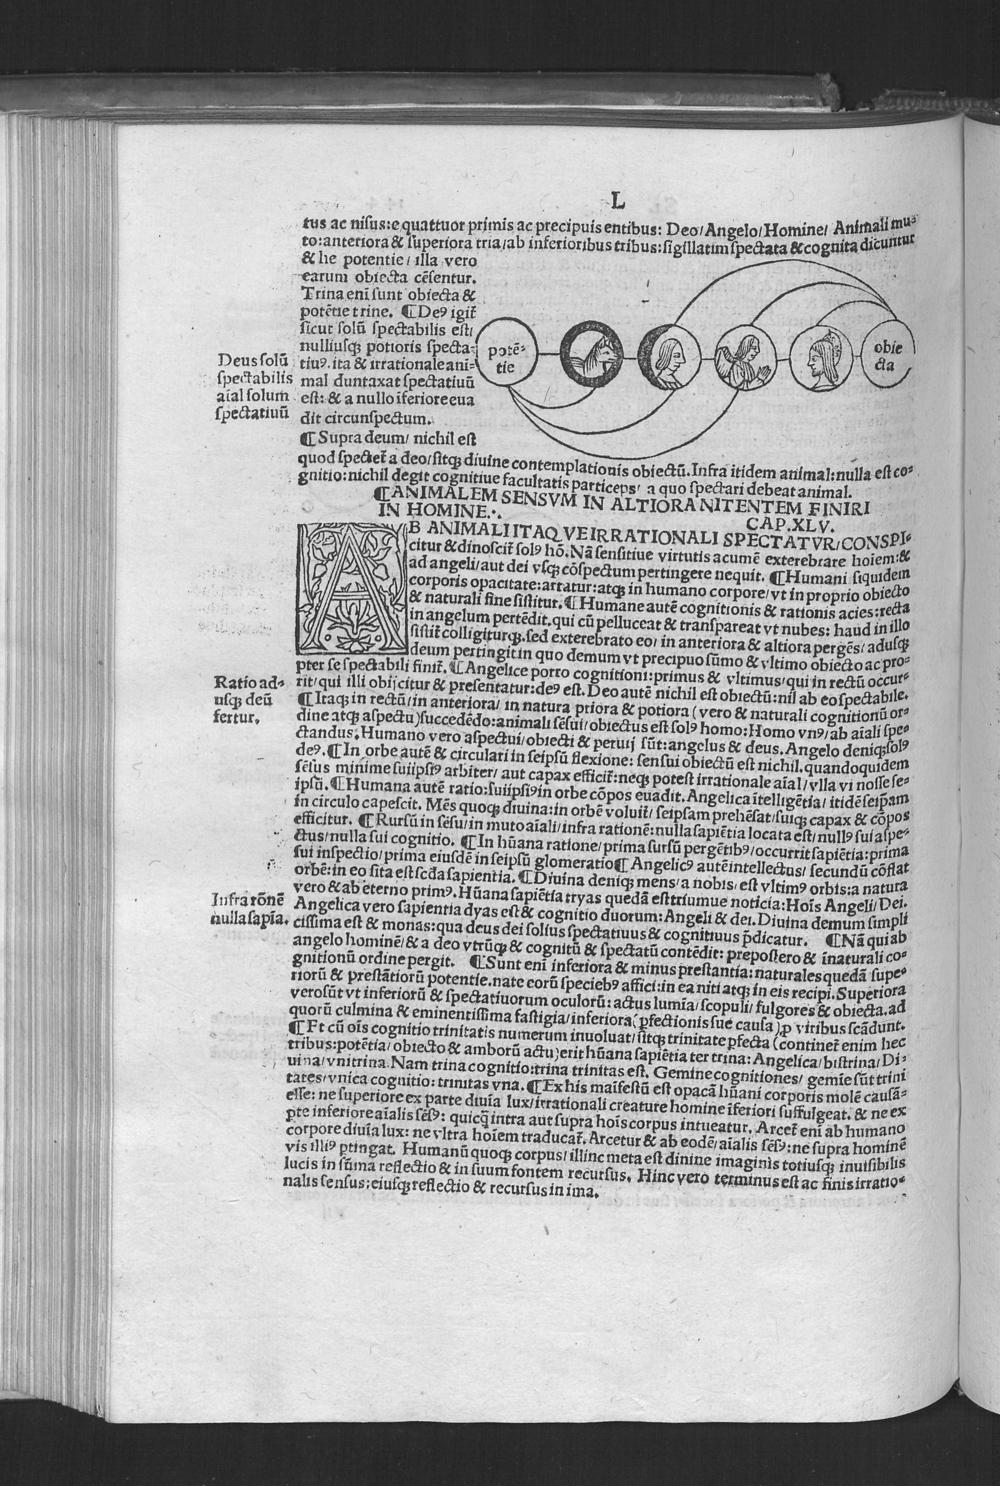 L
tus ac nisus:e quattuor primis ac precipuis entibus: Deo/Angelo/Homine/ Animali mu-
to:anteriora & superiora tria/ab inferioribus tribus:sigillatim spectata & cognita dicuntur
& he potentie/ illa vero
earum obiecta cēsentur.
Trina enī sunt obiecta &
potētie trine. ¶Deꝰ igit̄
sicut solū spectabilis est/
nulliusqꝫ potioris specta-
tiuꝰ. ita & irrationale ani-
mal duntaxat spectatiuū
est: & a nullo īferiore eua
dit circunspectum.
¶Supra deum/ nichil est
quod spectet̄ a deo/sitqꝫ diuine contemplationis obiectū. Infra itidem animal: nulla est co-
gnitio:nichil degit cognitiue facultatis particeps/ a quo spectari debeat animal.
Deus solū
spectabilis
aīal solum
spectatiuū
potē-
tie
obie
cta
¶ANIMALEM SENSVM IN ALTIORA NITENTEM FINIRI
IN HOMINE.·. CAP.XLV.
AB ANIMALI ITAQVE IRRATIONALI SPECTATVR/CONSPI-
citur & dinoscit̄ solꝰ hō. Nā sensitiue virtutis acumē exterebrare hoīem: &
ad angeli/aut dei vsqꝫ cōspectum pertingere nequit. ¶Humani siquidem
corporis opacitate:arratur:atqꝫ in humano corpore/vt in proprio obiecto
& naturali fine sistitur. ¶Humane autē cognitionis & rationis acies:recta
in angelum pertēdit. qui cū pelluceat & transpareat vt nubes: haud in illo
sistit̄ colligiturqꝫ. sed exterebrato eo/ in anteriora & altiora pergēs/ adusqꝫ
deum pertingit in quo demum vt precipuo sūmo & vltimo obiecto ac pro-
pter se spectabili finit̄. ¶Angelice porro cognitioni: primus & vltimus/qui in rectū occur-
rit/qui illi obijcitur & presentatur:deꝰ est. Deo autē nichil est obiectū:nil ab eo spectabile.
¶Itaqꝫ in rectū/in anteriora/ in natura priora & potiora (vero & naturali cognitionū or-
dine atqꝫ aspectu)succedēdo:animali sēsui/obiectus est solꝰ homo:Homo vnꝰ/ab aīali spe-
ctandus. Humano vero aspectui/obiecti & peruij sūt:angelus & deus. Angelo deniqꝫ solꝰ
deꝰ. ¶In orbe autē & circulari in seipsū flexione: sensui obiectū est nichil. quandoquidem
sēsus minime suiipsiꝰ arbiter/ aut capax efficit̄:neqꝫ potest irrationale aīal/vlla vi nosse se-
ipsū. ¶Humana autē ratio:suiipsiꝰ in orbe cōpos euadit. Angelica ītelligētia/ itidē seip̄am
in circulo capescit. Mēs quoqꝫ diuina:in orbē voluit̄/ seipsam prehēsat/suiqꝫ capax & cōpos
efficitur. ¶Rursū in sēsu/in muto aīali/infra rationē:nulla sapiētia locata est/nullꝰ sui aspe-
ctus/nulla sui cognitio. ¶In hūana ratione/prima sursū pergētibꝰ/occurrit sapiētia:prima
sui inspectio/prima eiusdē in seipsū glomeratio ¶Angelicꝰ autē intellectus/ secundū cōflat
orbē: in eo sita est scd̄a sapientia. ¶Diuina deniqꝫ mens/a nobis/est vltimꝰ orbis:a natura
vero & ab eterno primꝰ. Hūana sapiētia tryas quedā est:trisumue noticia:Hoīs Angeli/ Dei.
Angelica vero sapientia dyas est & cognitio duorum:Angeli & dei. Diuina demum simpli
cissima est & monas:qua deus dei solius spectatiuus & cognitiuus p̄dicatur. ¶Nā qui ab
angelo hominē/& a deo vtrūqꝫ & cognitū & spectatū contēdit: prepostero & īnaturali co-
gnitionū ordine pergit. ¶Sunt enī inferiora & minus prestantia:naturales quedā supe-
riorū & prestātiorū potentie. nate eorū speciebꝰ affici:in ea niti atqꝫ in eis recipi. Superiora
vero sūt vt inferiorū & spectatiuorum oculorū: actus lumīa/scopuli/fulgores & obiecta. ad
quorū culmina & eminentissima fastigia/inferiora (ꝑfectionis sue causa) ꝓ viribus scādunt.
¶Et cū oīs cognitio trinitatis numerum inuoluat/sitqꝫ trinitate ꝑfecta (continet̄ enim hec
tribus:potētia/obiecto & amborū actu)erit hūana sapiētia ter trina: Angelica/bistrina/Di-
uina/vnitrina. Nam trina cognitio:trina trinitas est. Gemine cognitiones/ gemīe sūt trini
tates/vnica cognitio: trinitas vna. ¶Ex his maīfestū est opacā hūani corporis molē causā-
esse: ne superiore ex parte diuīa lux/irrationali creature homine īferiori suffulgeat. & ne ex
ꝑte inferiore aīalis sēsꝰ: quicq̄ intra aut supra hoīs corpus intueatur. Arcet̄ enī ab humano
corpore diuīa lux: ne vltra hoīem traducat̄. Arcetur & ab eodē/aīalis sēsꝰ:ne supra hominē
vis illiꝰ ꝑtingat. Humanū quoqꝫ corpus/illinc meta est diuine imaginis totiusqꝫ inuisibilis
lucis in sūma reflectio & in suum fontem recursus. Hinc vero terminus est ac finis irratio-
nalis sensus:eiusqꝫ reflectio & recursus in ima.
Ratio ad-
usqꝫ deū
fertur.
Infra rōnē
nulla sapīa.